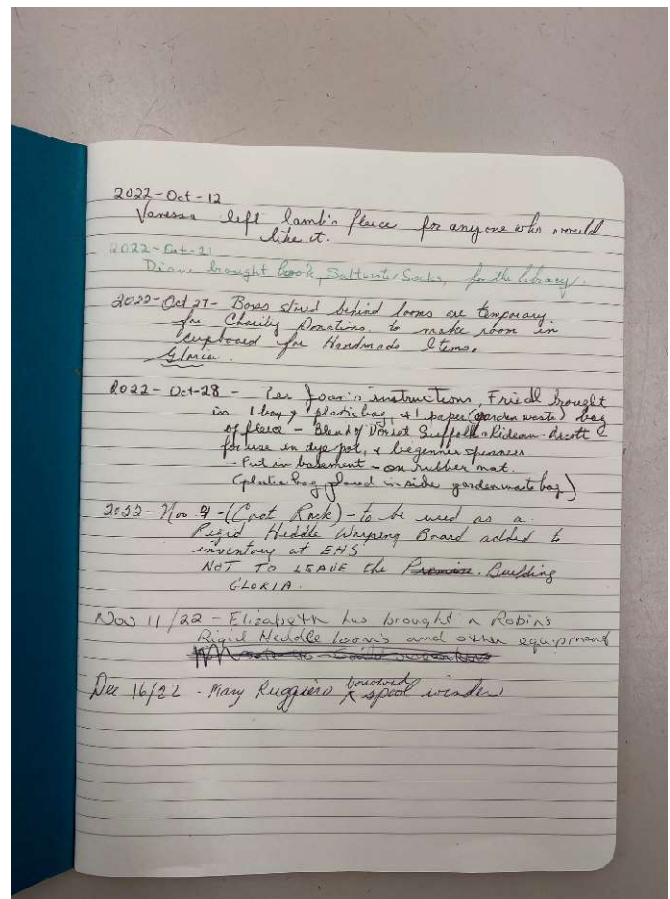 2022-Oct-12
Vanessa left lamb's fleece for anyone who would
like it.
2022-Oct-21
Diane brought book, Saltwater Socks, for the library.
2022-Oct 27- Boxes stored behind looms are temporary
for Charity Donations. to make room in
cupboard for Handmade Items.
Gloria.
2022-Oct-28 - Per Joan's instructions, Friedl brought
in 1 bag plastic bag, + 1 paper (garden waste) bag
of fleece - Blend of Dorset, Suffolk + Rideau-Arcott
for use in dye pot, + beginner spinners
- Put in basement - on rubber mat.
(plastic bag placed inside garden waste bag)
2022-Nov. 4 -(Coat Rack)-to be used as a
Rigid Heddle Warping Board added to
inventory at EHS
NOT TO LEAVE the Building
GLORIA.
Nov 11/22 - Elizabeth has brought in Robin's
Rigid Heddle looms and other equipment
Dec 16/22 - Mary Ruggiero borrowed spool winder